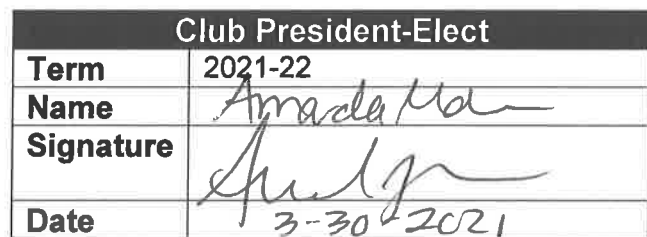 Club President-Elect
Term 2021-22
Name Amanda
Signature
Date 3-30-2021